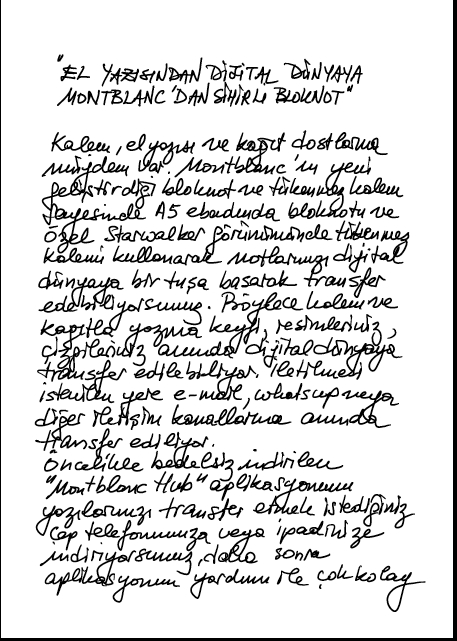 "EL YAZISINDAN DİJİTAL DÜNYAYA
MONTBLANC'DAN SİHİRLİ BLOKNOT"
Kalem, el yazısı ve kağıt dostlarına
müjdem var. Montblanc'ın yeni
geliştirdiği bloknot ve tükenmez kalem
sayesinde A5 ebadında bloknotu ve
özel Starwalker görünümünde tükenmez
kalemi kullanarak notlarınızı dijital
dünyaya bir tuşa basarak transfer
edebiliyorsunuz. Böylece kalem ve
kağıtla yazma keyfi, resimleriniz,
çizgileriniz anında dijital dünyaya
transfer edilebiliyor. İletilmesi
istenilen yere e-mail, whatsup veya
diğer iletişim kanallarına anında
transfer ediliyor.
Öncelikle bedelsiz indirilen
"Montblanc Hub" aplikasyonunu
yazılarınızı transfer etmek istediğiniz
cep telefonunuza veya ipadinize
indiriyorsunuz, daha sonra
aplikasyonun yardımı ile çok kolay